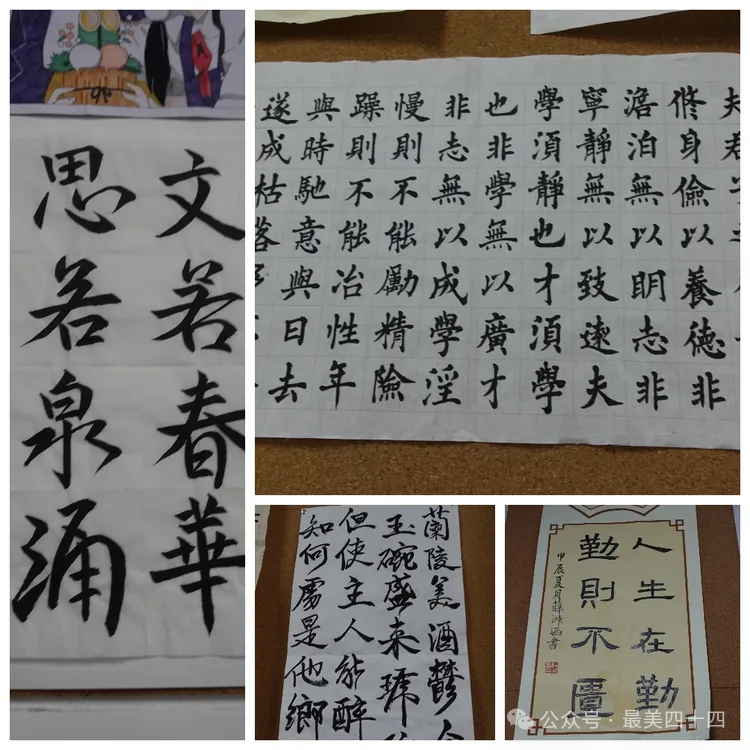 文若春華
思若泉涌
夫君子
修身儉以養德非
澹泊無以明志非
寧靜無以致遠夫
學須靜也才須學
也非學無以廣才
非志無以成學淫
慢則不能勵精險
躁則不能冶性年
與時馳意與日去
遂成枯落多
蘭陵美酒鬱金
玉碗盛来琥
但使主人能醉
知何處是他鄉
人生在勤
勤則不匱
甲辰夏月薛沛涵書
公众号·最美四十四